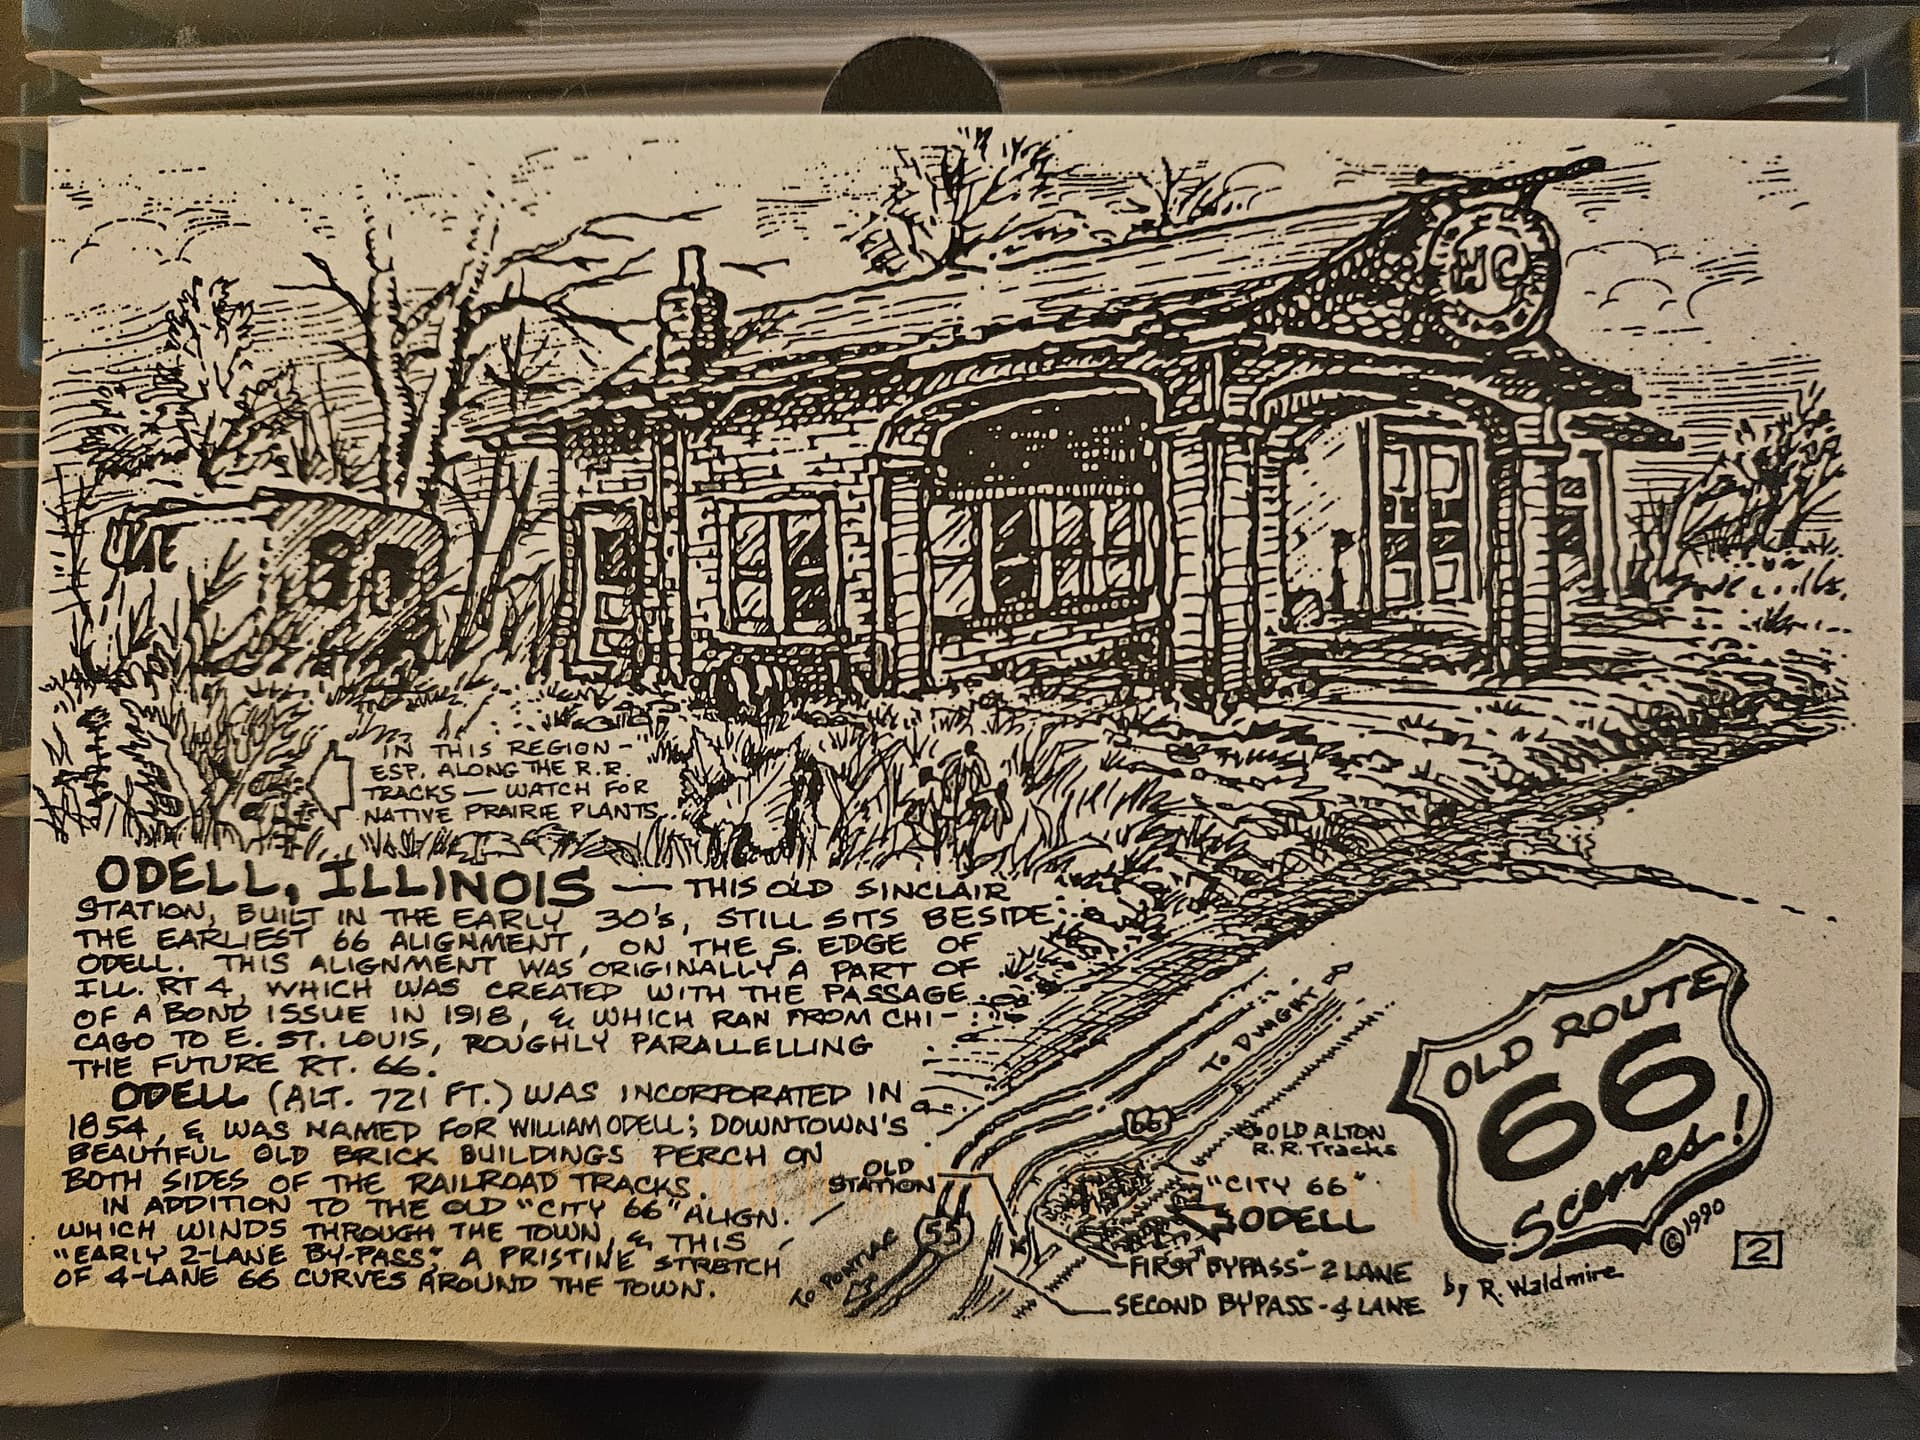 HC
IN THIS REGION -
ESP. ALONG THE R.R.
TRACKS — WATCH FOR
NATIVE PRAIRIE PLANTS
ODELL, ILLINOIS — THIS OLD SINCLAIR
STATION, BUILT IN THE EARLY 30's, STILL SITS BESIDE
THE EARLIEST 66 ALIGNMENT, ON THE S. EDGE OF
ODELL. THIS ALIGNMENT WAS ORIGINALLY A PART OF
ILL. RT 4, WHICH WAS CREATED WITH THE PASSAGE
OF A BOND ISSUE IN 1918, & WHICH RAN FROM CHI-
CAGO TO E. ST. LOUIS, ROUGHLY PARALLELLING
THE FUTURE RT. 66.
ODELL (ALT. 721 FT.) WAS INCORPORATED IN
1854, & WAS NAMED FOR WILLIAM ODELL; DOWNTOWN'S
BEAUTIFUL OLD BRICK BUILDINGS PERCH ON
BOTH SIDES OF THE RAILROAD TRACKS.
IN ADDITION TO THE OLD "CITY 66" ALIGN.
WHICH WINDS THROUGH THE TOWN, & THIS
"EARLY 2-LANE BY-PASS", A PRISTINE STRETCH
OF 4-LANE 66 CURVES AROUND THE TOWN.
TO DWIGHT
66
OLD ALTON
R.R. Tracks
OLD
STATION
"CITY 66"
ODELL
55
TO PONTIAC
FIRST BYPASS - 2 LANE
SECOND BYPASS - 4 LANE
OLD ROUTE
66
Scenes!
©1990
by R. Waldmire
2